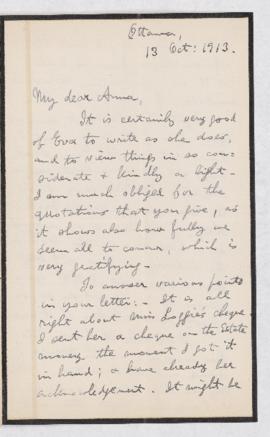 Ottawa,
13 Oct: 1913.
My dear Anna,
It is certainly very good
of Eva to write as she does,
and to view things in so con-
siderate & kindly a light -
I am much obliged for the
quotations that you give, as
it shows also how fully we
seem all to concur, which is
very gratifying -
To answer various points
in your letter: - It is all
right about Miss Loggie's cheque
I sent her a cheque on the Estate
money the moment I got it
in hand; & have already her
acknowledgement. It might be